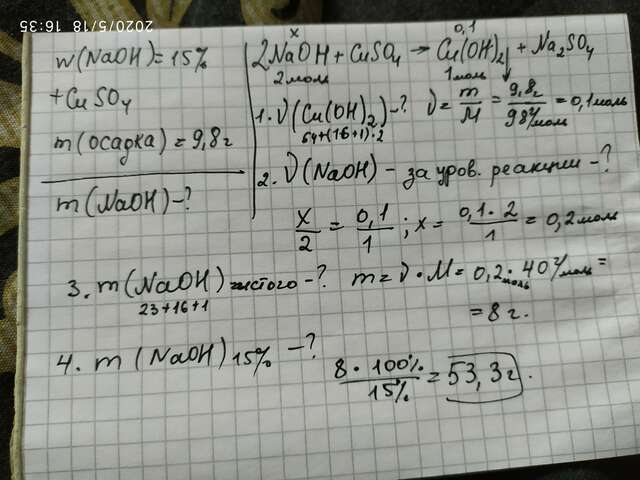 2020/5/18 16:35
w(NaOH)=15%
+CuSO₄
m(осадка)=9,8г
m(NaOH)-?
x 0,1
2NaOH+CuSO₄→Cu(OH)₂↓+Na₂SO₄
2моль 1моль
1. ν(Cu(OH)₂)-? ν=m/M=9,8г/98г/моль=0,1моль
64+(16+1)·2
2. ν(NaOH) - за уров. реакции-?
x/2=0,1/1; x=0,1·2/1=0,2моль
3. m(NaOH)чистого-? m=ν·M=0,2моль·40г/моль=
23+16+1
=8г.
4. m(NaOH)15% -? 8·100%/15%=53,3г.